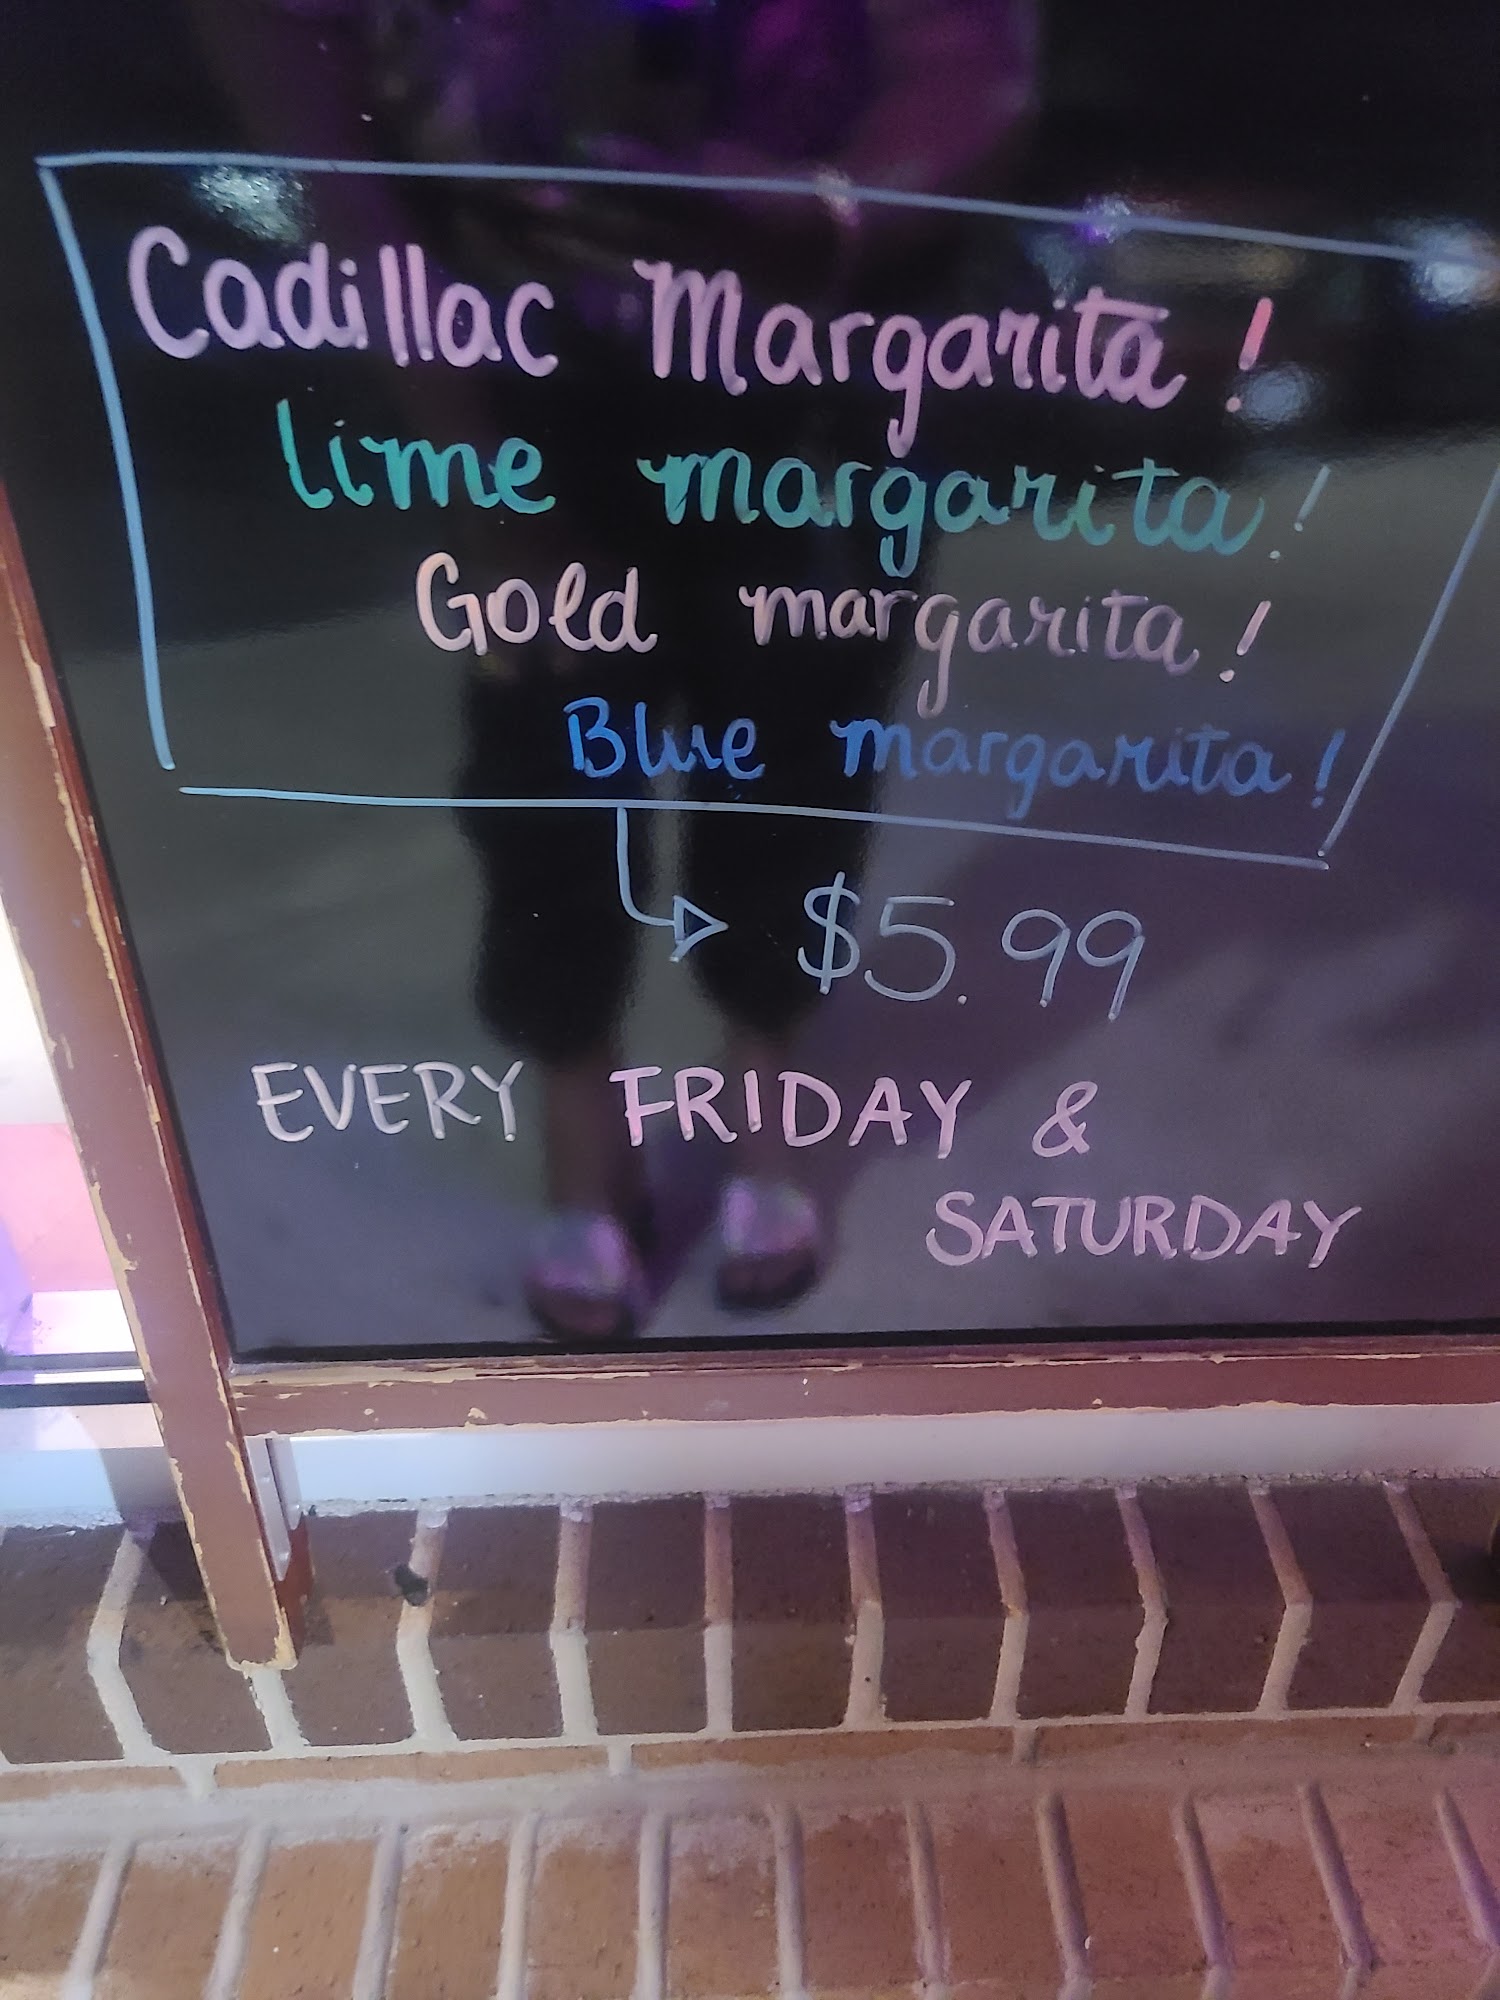 Cadillac Margarita!
lime margarita!
Gold margarita!
Blue margarita!
$5.99
EVERY FRIDAY &
SATURDAY